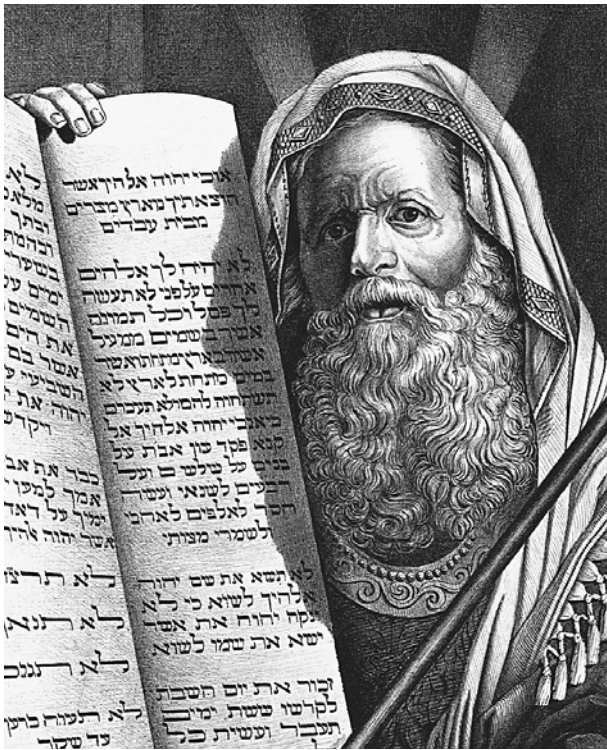 אנכי יהוה אלהיך אשר
הוצאתיך מארץ מצרים
מבית עבדים
לא יהיה לך אלהים
אחרים על פני לא תעשה
לך פסל וכל תמונה
אשר בשמים ממעל
אשר בארץ מתחת ואשר
במים מתחת לארץ לא
תשתחוה להם ולא תעבדם
כי אנכי יהוה אלהיך אל
קנא פקד עון אבת על
בנים על שלשים ועל
רבעים לשנאי ועשה
חסד לאלפים לאהבי
ולשמרי מצותי
לא תשא את שם יהוה
אלהיך לשוא כי לא
ינקה יהוה את אשר
ישא את שמו לשוא
זכור את יום השבת
לקדשו ששת ימים
תעבד ועשית כל
לא
מלאכ
ובתך
ובהמת
בשערי
ימים
השמים
את הים
אשר בם
השביעי
יהוה את
ויקדש
כבד את אב
אמך למען
ימיך על האד
אשר יהוה אלהיך
לא תרצ
לא תנאף
לא תגנב
לא תענה ברעך
עד שקר